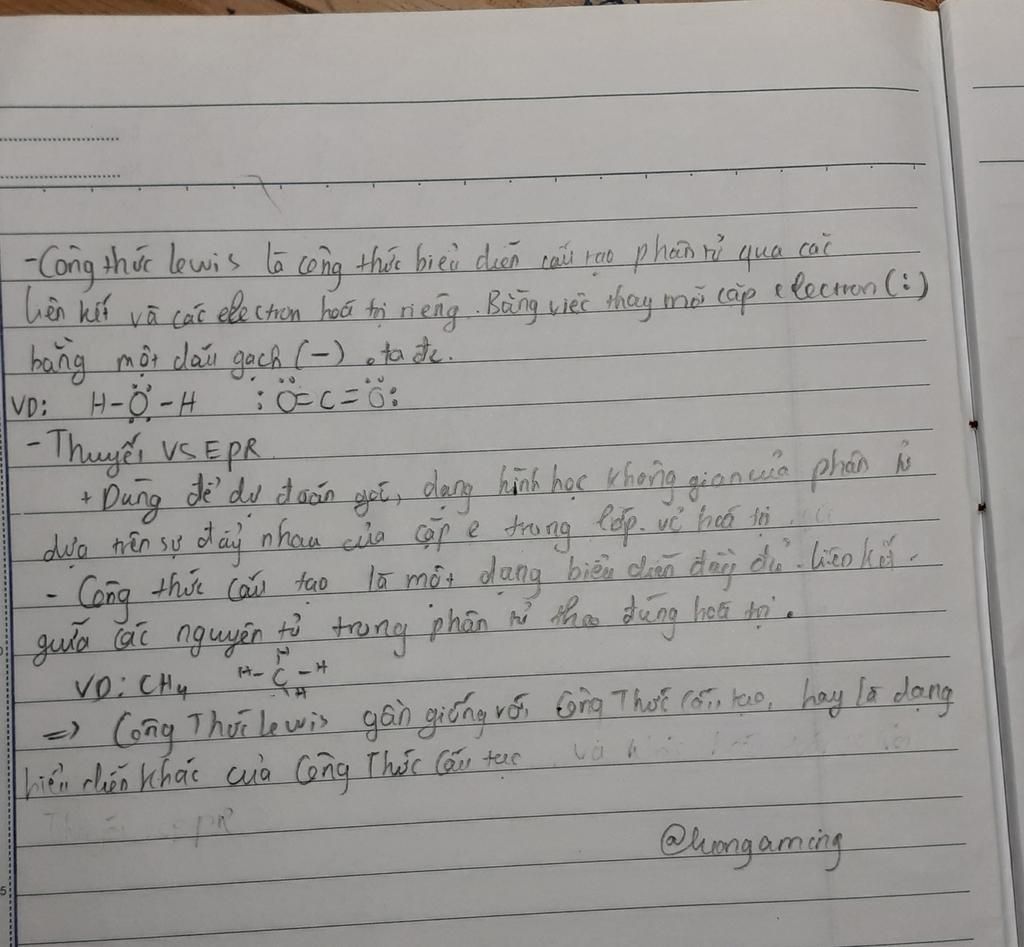 - Công thức lewis là công thức biểu diễn cấu tạo phân tử qua các
liên kết và các electron hoá trị riêng. Bằng việc thay mỗi cặp electron (:)
bằng một dấu gạch (-). ta đc.
VD: H-Ö-H :Ö=C=Ö:
- Thuyết VSEPR
+ Dùng để dự đoán góc, dạng hình học không gian của phân tử
dựa trên sự đẩy nhau của cặp e trong lớp vỏ hoá trị
- Công thức cấu tạo là một dạng biểu diễn đầy đủ liên kết.
giữa các nguyên tử trong phân tử theo đúng hoá trị.
H
VD: CH4 H-C-H
H
=> Công Thức lewis gần giống với Công Thức Cấu tạo, hay là dạng
biểu diễn khác của Công Thức Cấu tạo và
@luongamcing